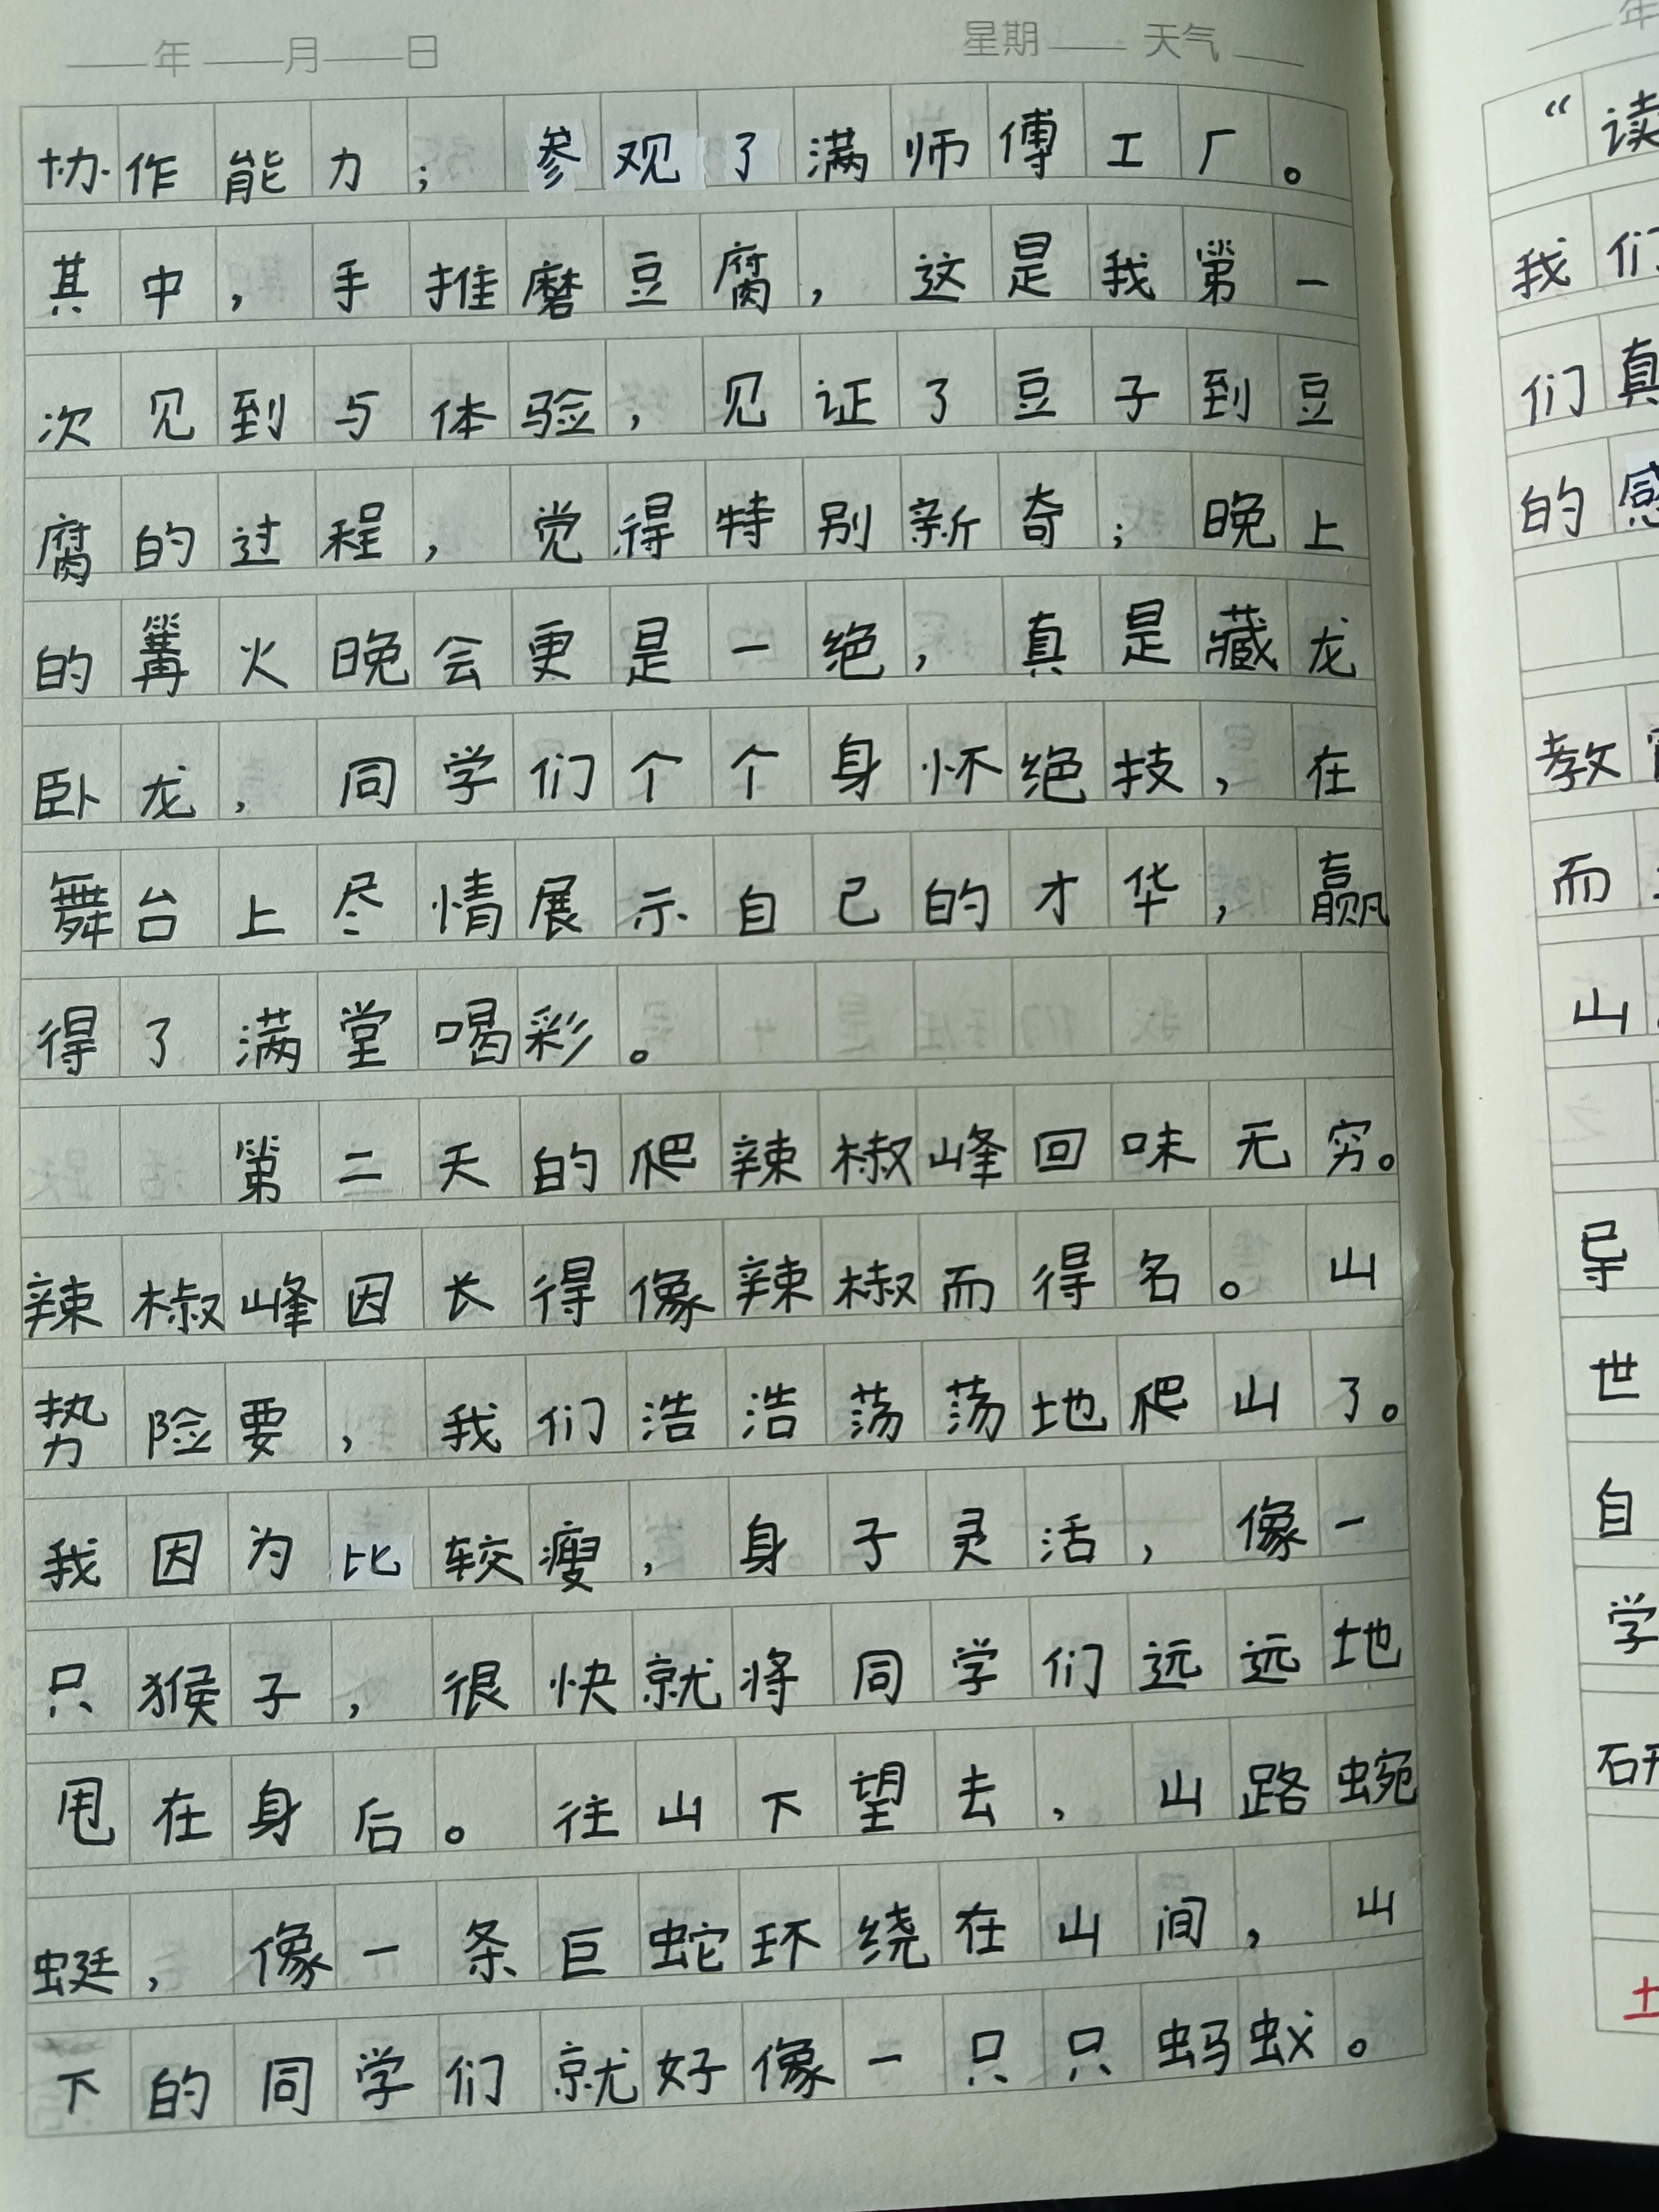 年 月 日 星期 天气
协作能力；参观了满师傅工厂。
其中，手推磨豆腐，这是我第一
次见到与体验，见证了豆子到豆
腐的过程，觉得特别新奇；晚上
的篝火晚会更是一绝，真是藏龙
卧龙，同学们个个身怀绝技，在
舞台上尽情展示自己的才华，赢
得了满堂喝彩。
第二天的爬辣椒峰回味无穷。
辣椒峰因长得像辣椒而得名。山
势险要，我们浩浩荡荡地爬山了。
我因为比较瘦，身子灵活，像一
只猴子，很快就将同学们远远地
甩在身后。往山下望去，山路蜿
蜒，像一条巨蛇环绕在山间，山
下的同学们就好像一只只蚂蚁。
年
“读
我们
们真
的感
教
而
山
导
世
自
学
研
土